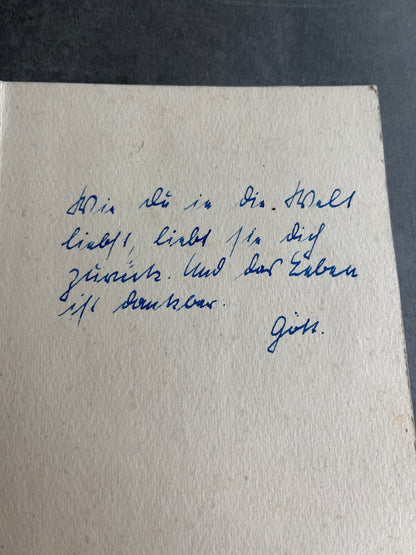 Wie du in die Welt
liebst, liebt sie dich
zurück. Und das Leben
ist dankbar.
Gött.